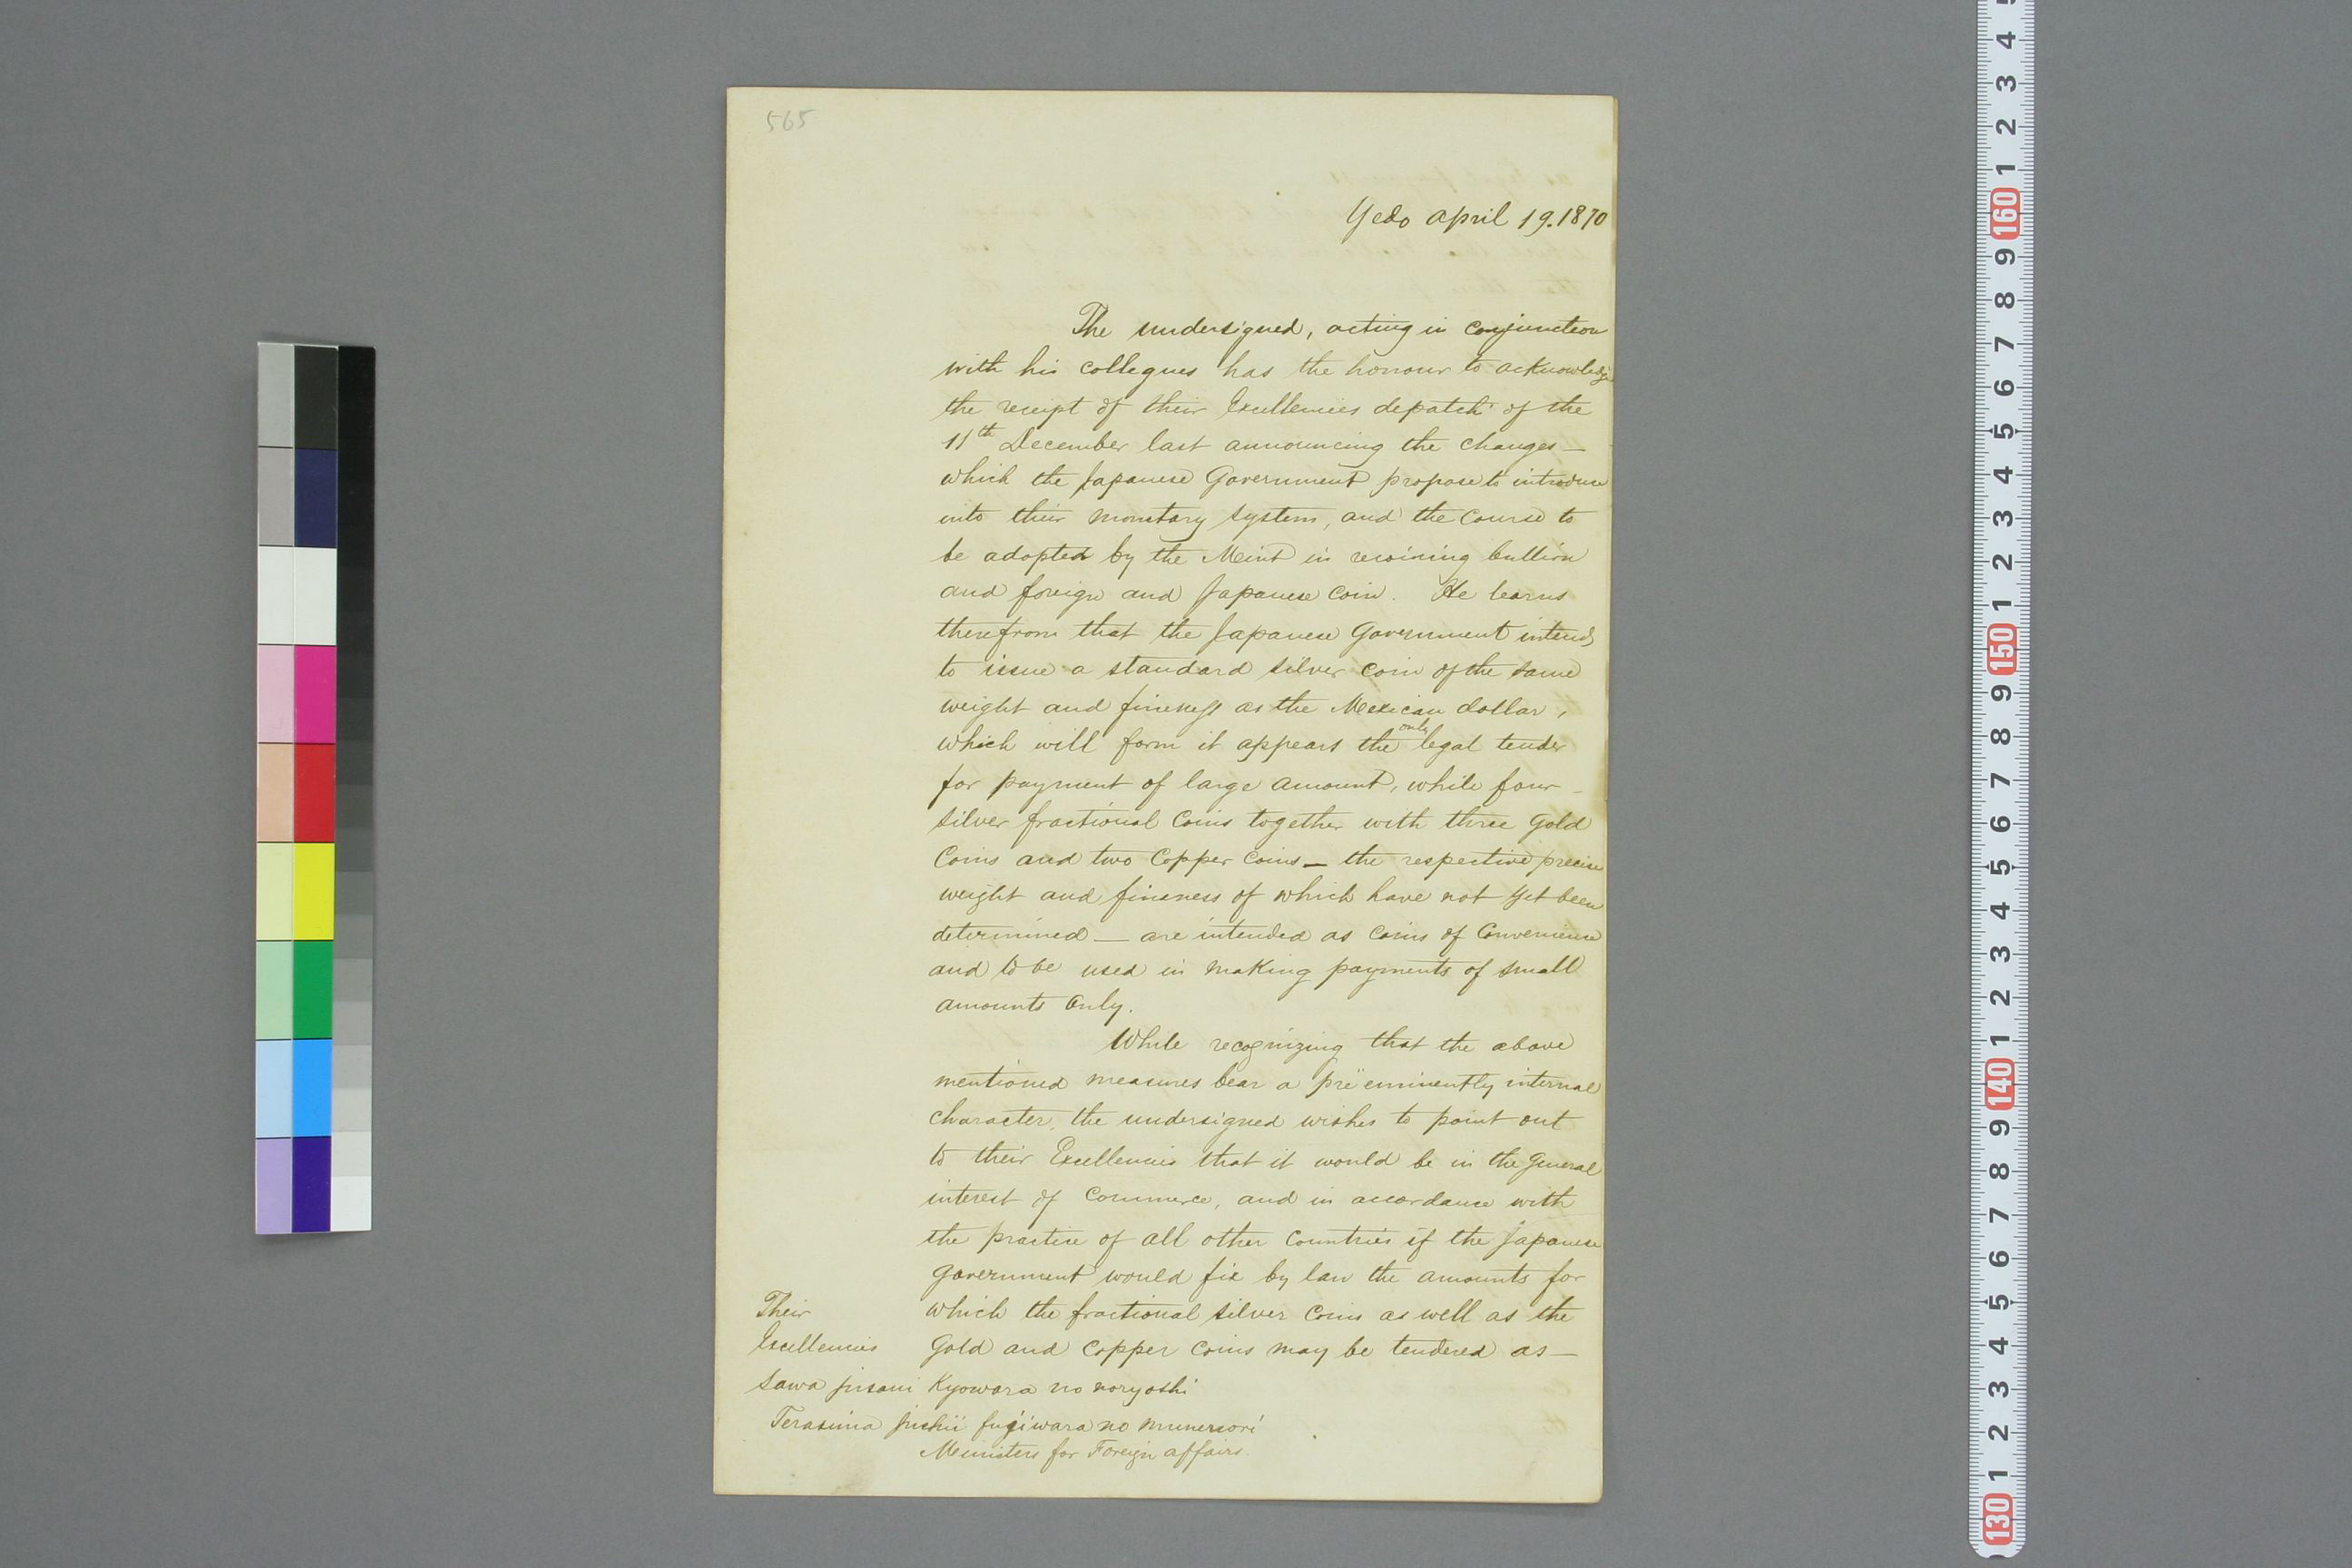 565
Yedo april 19.1870
The undersigned, acting in conjunction
with his collegues has the honour to acknowledge
the receipt of their Excellencies depatch of the
11th December last announcing the changes —
which the Japanese Government propose to introduce
into their monetary system, and the course to
be adopted by the Meint in receiving bullion
and foreign and Japanese coin. He learns
therefrom that the Japanese Government intends
to issue a standard silver coin of the same
weight and fineness as the Mexican dollar,
which will form it appears the only legal tender
for payment of large amount, while four
silver fractional Coins together with three Gold
Coins and two Copper Coins — the respective precise
weight and fineness of which have not yet been
determined — are intended as Coins of Convenience
and to be used in making payments of small
amounts only.
While recognizing that the above
mentioned measures bear a preëminently internal
character, the undersigned wishes to point out
to their Excellencies that it would be in the general
interest of Commerce, and in accordance with
the practice of all other Countries if the Japanese
Government would fix by law the amounts for
which the fractional silver Coins as well as the
Gold and Copper Coins may be tendered as —
Their
Excellencies
Sawa jusani Kyowara no noryoshi
Terasima jushii fugiwara no munenori
Ministers for Foreign affairs.
5
4
3
2
1
160
9
8
7
6
5
4
3
2
1
150
9
8
7
6
5
4
3
2
1
140
9
8
7
6
5
4
3
2
1
130